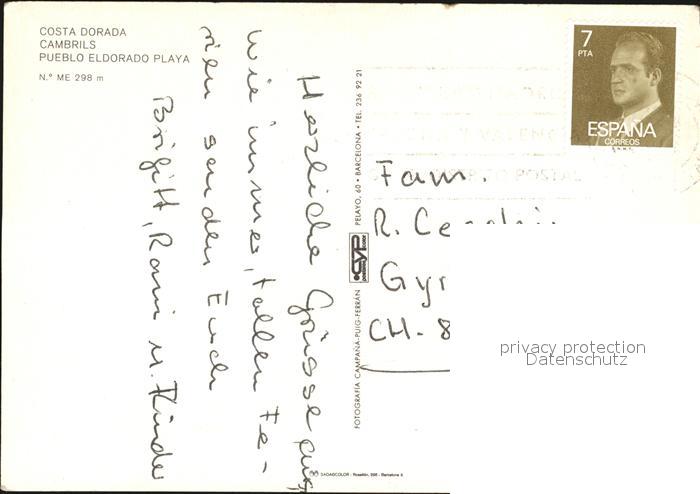 COSTA DORADA
CAMBRILS
PUEBLO ELDORADO PLAYA
N.º ME 298 m
Herzliche Grüsse aus
wie immer, tollen Fe-
rien senden Euch
Brigitt, Romi u. Kinder
FOTOGRAFÍA CAMPAÑÁ-PUIG-FERRÁN
CYP
PELAYO, 60 • BARCELONA • TEL. 236 92 21
7
PTA
ESPAÑA
CORREOS
POSTAL
Fam.
R.
Gyr
CH-8
privacy protection
Datenschutz